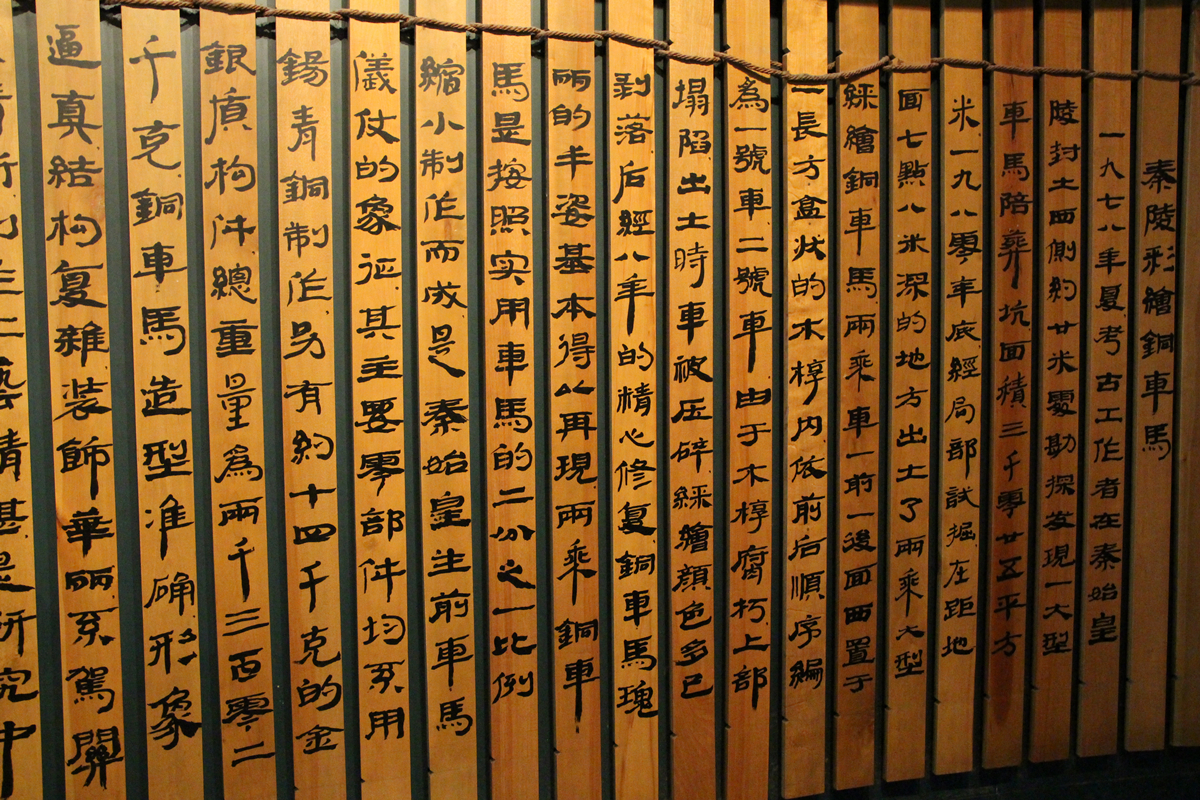 秦陵彩繪銅車馬
一九七八年夏考古工作者在秦始皇
陵封土西側約廿米處勘探发現一大型
車馬陪葬坑面積三千零廿五平方
米一九八零年底經局部試掘在距地
面七點八米深的地方出土了兩乘大型
綵繪銅車馬兩乘車一前一後面西置于
一長方盒狀的木椁内依前后順序編
為一號車二號車由于木椁腐朽上部
塌陷出土時車被压碎綵繪顔色多已
剥落后經八年的精心修复銅車馬瑰
丽的丰姿基本得以再現兩乘銅車
馬是按照实用車馬的二分之一比例
縮小制作而成是秦始皇生前車馬
儀仗的象征其主要零部件均系用
錫青銅制作另有約十四千克的金
銀質构件總重量爲兩千三百零二
千克銅車馬造型准确形象
逼真结构复雜装飾華丽系駕關
藝精甚是研究中